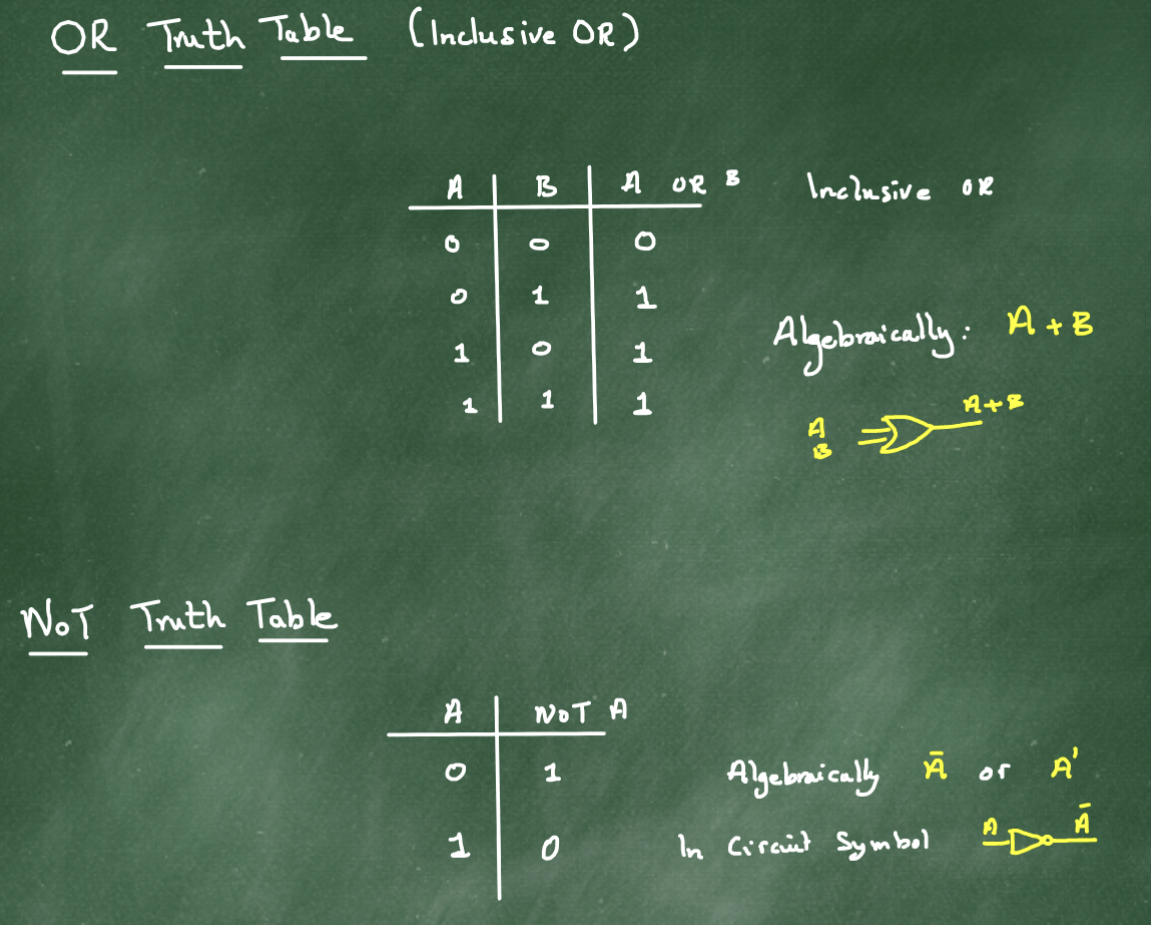 OR Truth Table (Inclusive OR)
A B A OR B Inclusive OR
0 0 0
0 1 1
1 0 1
1 1 1
Algebraically: A + B
A+B
A
B
NOT Truth Table
A NOT A
0 1
1 0
Algebraically Ā or A'
In Circuit Symbol A Ā